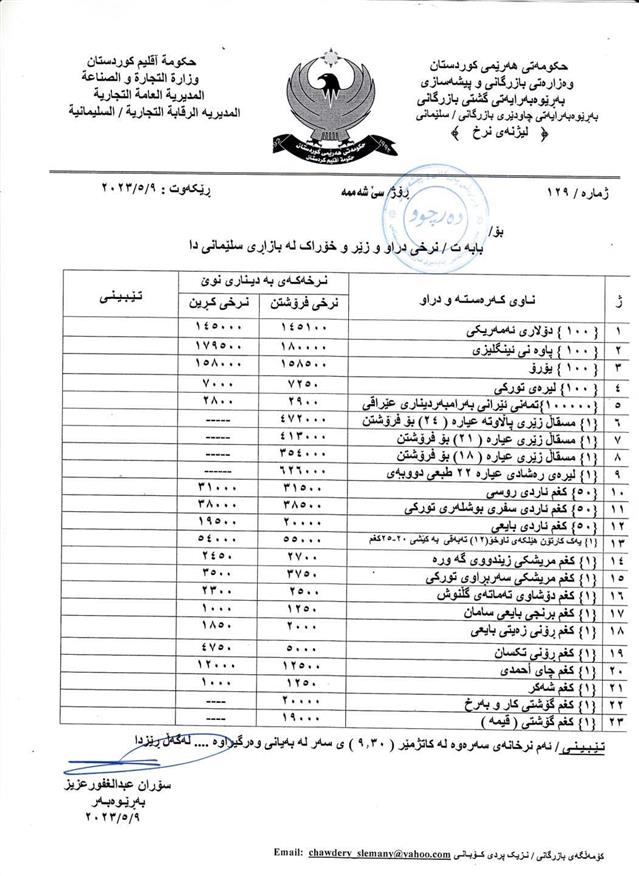 حکومەتی هەرێمی کوردستان
وەزارەتی بازرگانی و پیشەسازی
بەڕێوەبەرایەتی گشتی بازرگانی
بەڕێوەبەرایەتی چاودێری بازرگانی / سلێمانی
﴿ لیژنەی نرخ ﴾
حكومة أقليم كوردستان
وزارة التجارة و الصناعة
المديرية العامة التجارية
المديريه الرقابة التجارية / السليمانية
حکومەتی هەرێمی کوردستان
حكومة اقليم كردستان
1992
ژمارە / ١٢٩
ڕۆژ/ سێ شەممە
ڕێکەوت : ٢٠٢٣/٥/٩
دەرچوو
بۆ/
بابە ت / نرخی دراو و زێر و خۆراک لە بازاڕی سلێمانی دا
ژ ناوی کەرەستە و دراو نرخەکەی بە دیناری نوێ تێبینی
نرخی فرۆشتن نرخی کڕین
١ { ١٠٠ } دۆلاری ئەمەریکی ١٤٥١٠٠ ١٤٥٠٠٠
٢ { ١٠٠ } پاوە نی ئینگلیزی ١٨٠٠٠٠ ١٧٩٥٠٠
٣ { ١٠٠ } یۆرۆ ١٥٨٥٠٠ ١٥٨٠٠٠
٤ {١٠٠ } لیرەی تورکی ٧٢٥٠ ٧٠٠٠
٥ {١٠٠٠٠٠}تمەنی ئێرانی بەرامبەردیناری عێراقی ٢٩٠٠ ٢٨٠٠
٦ {١} مسقاڵ زێری پاڵاوتە عیارە ( ٢٤) بۆ فرۆشتن ٤٧٢٠٠٠ -----
٧ {١} مسقاڵ زێری عیارە ( ٢١) بۆ فرۆشتن ٤١٣٠٠٠ -----
٨ {١} مسقاڵ زێری عیارە ( ١٨) بۆ فرۆشتن ٣٥٤٠٠٠ -----
٩ {١} لیرەی رەشادی عیارە ٢٢ طبعی دووبەی ٦٢٦٠٠٠ ------
١٠ {٥٠} کغم ئاردی روسی ٣١٥٠٠ ٣١٠٠٠
١١ {٥٠} کغم ئاردی سفری بوشلەری تورکی ٣٨٥٠٠ ٣٨٠٠٠
١٢ {٥٠} کغم ئاردی بایعی ٢٠٠٠٠ ١٩٥٠٠
١٣ {١} یەک کارتۆن هێلکەی ناوخۆ(١٢) تەبەقی بە کێشی ٢٠-٢٥کغم ٥٥٠٠٠ ٥٤٠٠٠
١٤ {١} کغم مریشکی زیندووی گە ورە ٢٧٠٠ ٢٤٥٠
١٥ {١} کغم مریشکی سەربڕاوی تورکی ٣٧٥٠ ٣٥٠٠
١٦ {١} کغم دۆشاوی تەماتەی گڵنوش ٢٥٠٠ ٢٣٠٠
١٧ {١} کغم برنجی بایعی سامان ١٢٥٠ ١٠٠٠
١٨ {١} کغم ڕۆنی زەیتی بایعی ٢٠٠٠ ١٨٥٠
١٩ {١} کغم ڕۆنی تکسان ٥٠٠٠ ٤٧٥٠
٢٠ {١} کغم چای أحمدی ١٢٥٠٠ ١٢٠٠٠
٢١ {١} کغم شەکر ١٢٥٠ ١٠٠٠
٢٢ {١} کغم گۆشتی کار و بەرخ ٢٠٠٠٠ ----
٢٣ {١} کغم گۆشتی ( قیمە ) ١٩٠٠٠ ----
تێبینی/ ئەم نرخانەی سەرەوە لە کاتژمێر ( ٩,٣٠ ) ی سەر لە بەیانی وەرگیراوە .... لەگەڵ ڕێزدا
سۆران عبدالغفورعزیز
بەڕێوەبەر
٢٠٢٣/٥/٩
کۆمەڵگەی بازرگانی / نزیک پردی کۆبانی Email: chawdery_slemany@yahoo.com